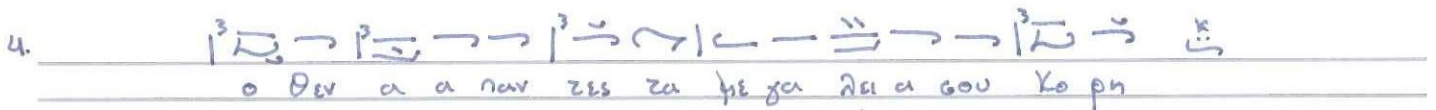 4.
ο θεν α α παν τες τα με γα λει α σου κο ρη